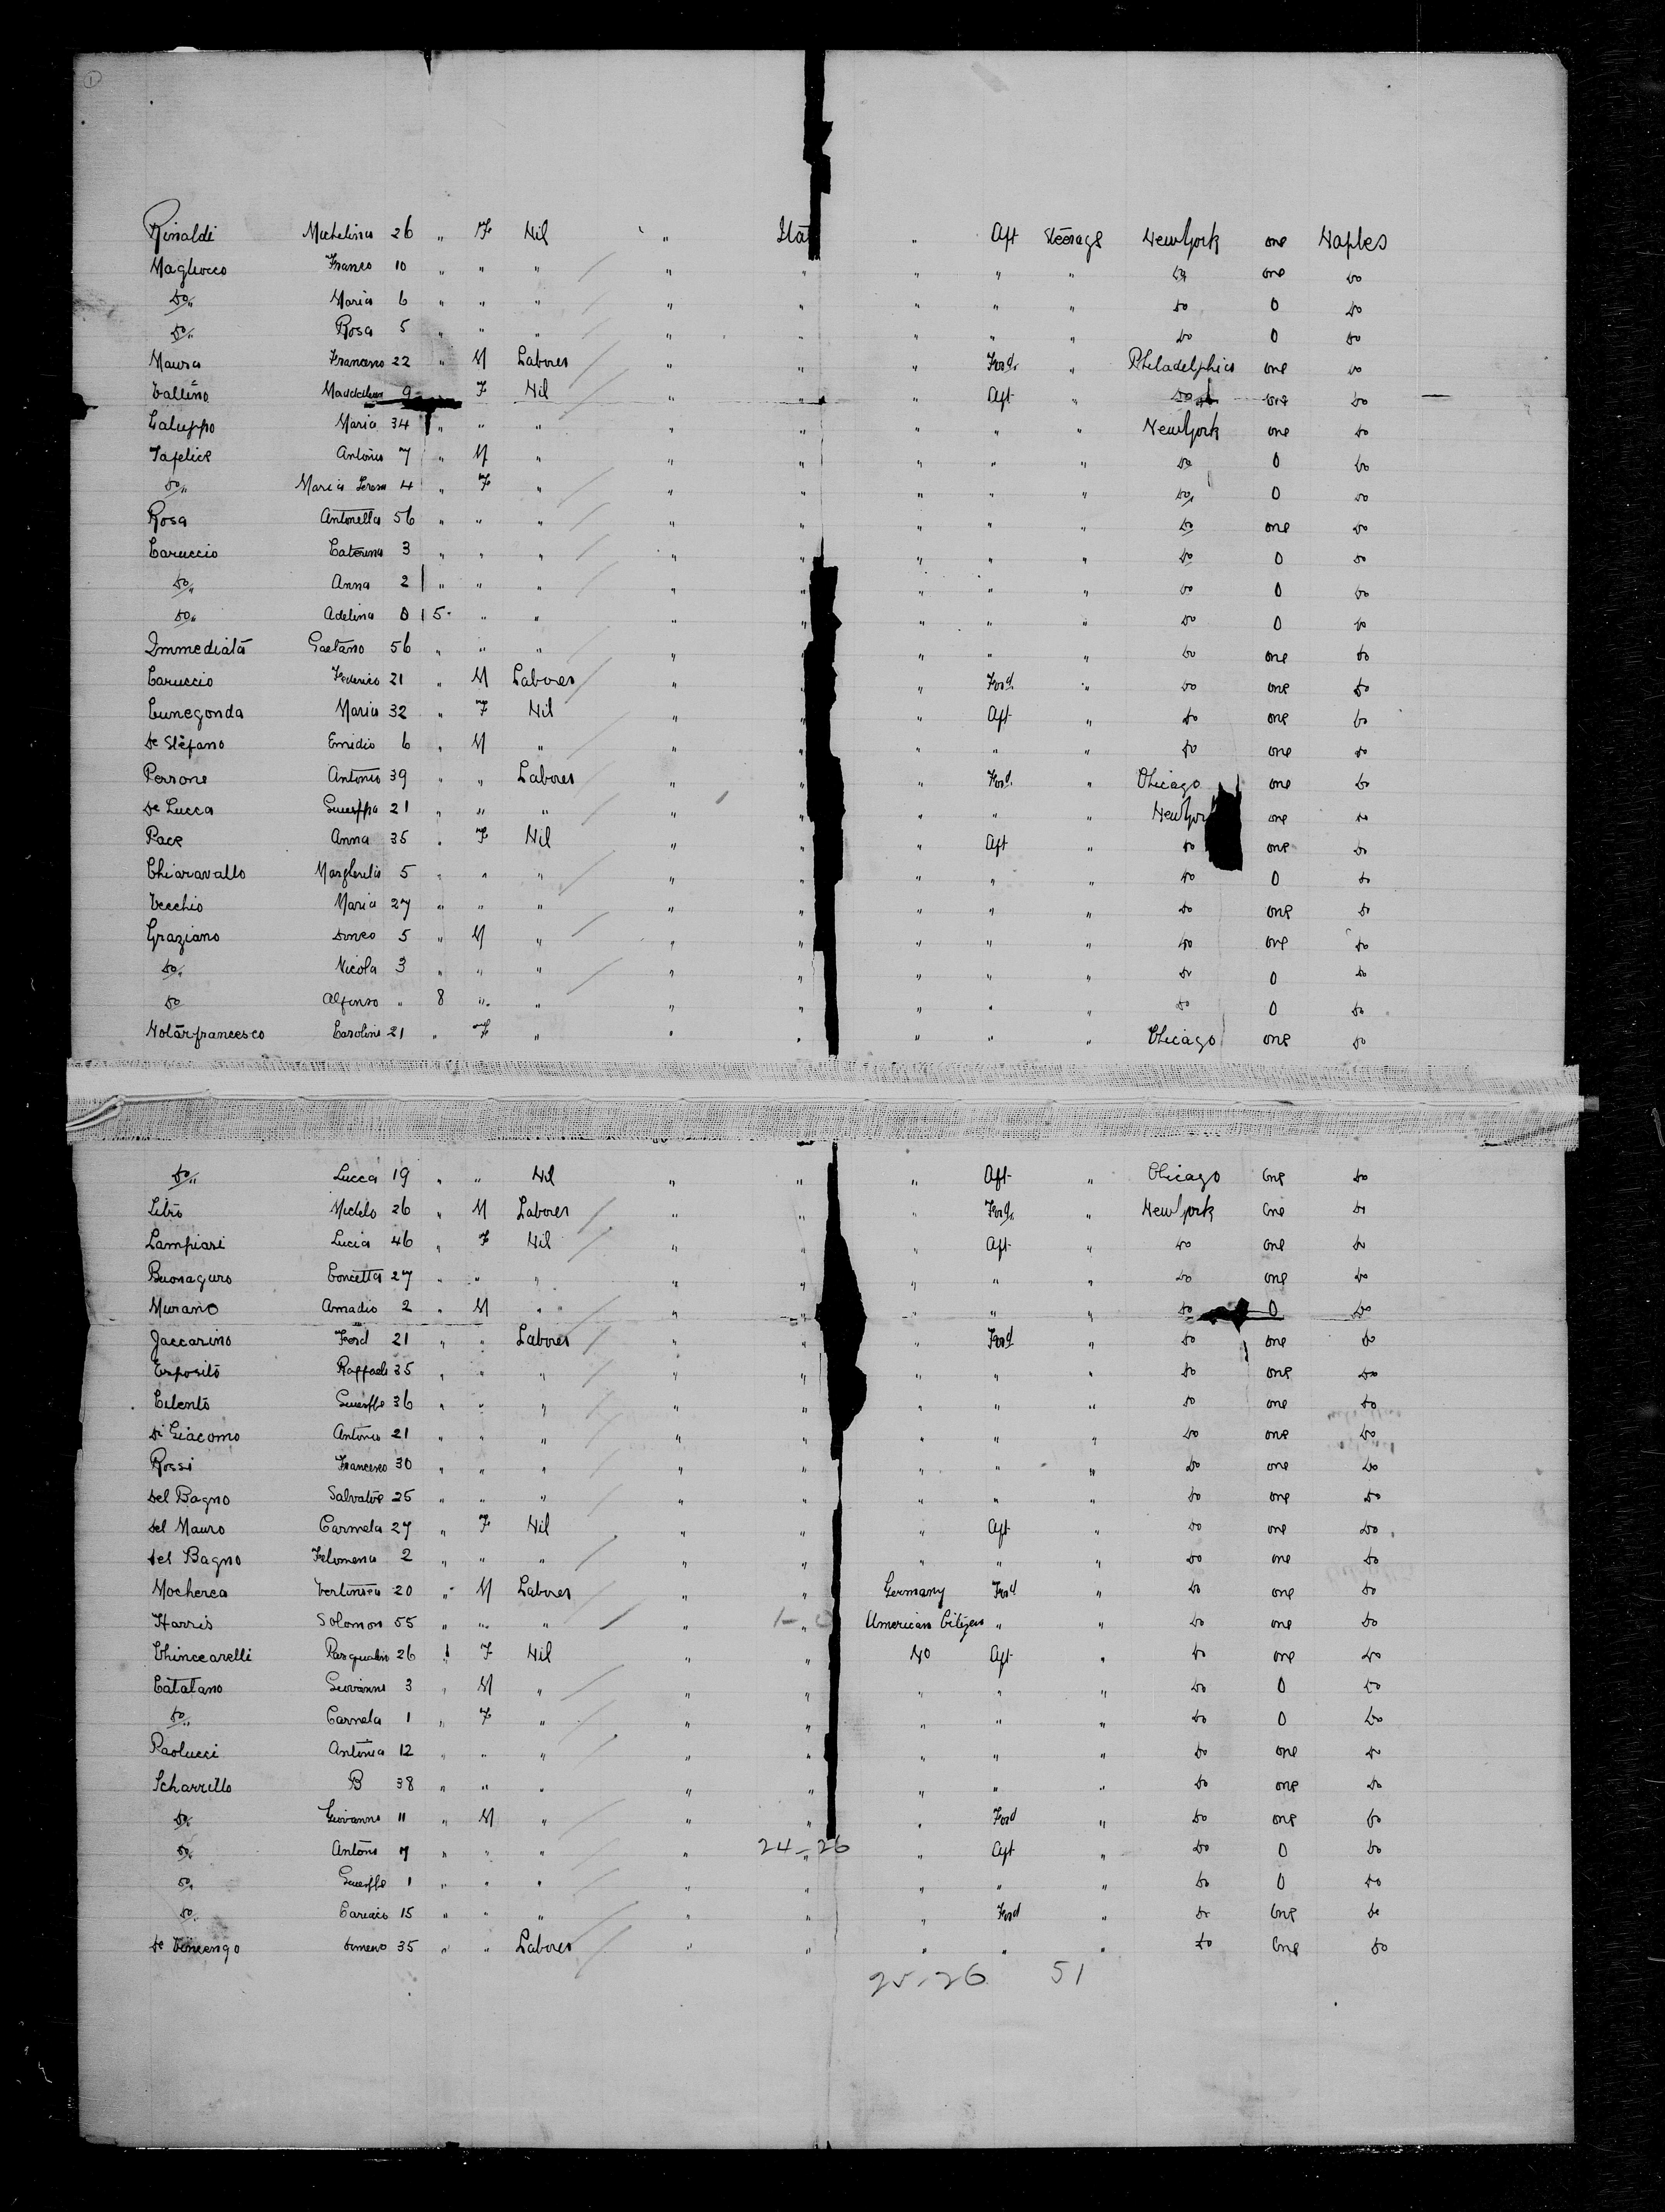 1
Rinaldi Michelina 26 " F Nil " Ita " Aft Steerage New York one Naples
Magliocco Franco 10 " " " " " " " " do one do
do " Maria 6 " " " " " " " " do 0 do
do " Rosa 5 " " " " " " " " do 0 do
Maura Francesco 22 " M Laborer " " " Ford. " Philadelphia one do
Vallino Maddalena 9 F Nil " " " Aft " do one do
Galuppo Maria 34 " " " " " " " " New York one do
Tafelice Antonio 7 " M " " " " " " do 0 do
do " Maria Teresa 4 " F " " " " " " do 0 do
Rosa Antonella 56 " " " " " " " " do one do
Caruccio Caterina 3 " " " " " " " " do 0 do
do " Anna 2 " " " " " " " " do 0 do
do " Adelina 0 5 " " " " " " " do 0 do
Immediata Gaetano 56 " " " " " " " " do one do
Caruccio Federico 21 " M Laborer " " " Ford. " do one do
Cunegonda Maria 32 " F Nil " " " Aft " do one do
De Stefano Emidio 6 " M " " " " " " do one do
Perrone Antonio 39 " " Laborer " " " Ford. " Chicago one do
De Lucca Giuseppa 21 " " " " " " " " New York one do
Pace Anna 35 " F Nil " " " Aft " do one do
Chiaravallo Margherita 5 " " " " " " " " do 0 do
Vecchio Maria 27 " " " " " " " " do one do
Graziano Domco 5 " M " " " " " " do one do
do " Nicola 3 " " " " " " " " do 0 do
do Alfonso " 8 " " " " " " " do 0 do
Notarfrancesco Carolina 21 " F " " " " " " Chicago one do
do " Lucca 19 " " Nil " " " Aft " Chicago one do
Libro Michele 26 " M Laborer " " " Ford. " New York one do
Lampiari Lucia 46 " F Nil " " " Aft " do one do
Buonaguro Concetta 27 " " " " " " " " do one do
Murano Amadio 2 " M " " " " " " do 0 do
Jaccarino Ferd 21 " " Laborer " " " Ford " do one do
Esposito Raffaele 35 " " " " " " " " do one do
Cilento Giuseppe 36 " " " " " " " " do one do
Di Giacomo Antonio 21 " " " " " " " " do one do
Rossi Francesco 30 " " " " " " " " do one do
Del Bagno Salvatore 25 " " " " " " " " do one do
Del Mauro Carmela 27 " F Nil " " " Aft " do one do
Del Bagno Filomena 2 " " " " " " " " do one do
Mocherea 20 " M Laborer " " Germany Ford " do one do
Harris Solomon 55 " " " " " American Citizen " " do one do
Chinccarelli Pasqualina 26 " F Nil " " No Aft " do one do
Catalano Giovanni 3 " M " " " " " " do 0 do
do " Carmela 1 " F " " " " " " do 0 do
Paolucci Antonia 12 " " " " " " " " do one do
Scharrillo B 38 " " " " " " " " do one do
do " Giovanni 11 " M " " " " Ford " do one do
do " Antonio 7 " " " " 24-26 " " Aft " do 0 do
do " Giuseppe 1 " " " " " " " " do 0 do
do " 15 " " " " " " Ford " do one do
De Vincenzo Domenico 35 " " Laborer " " " " " do one do
25-26 51